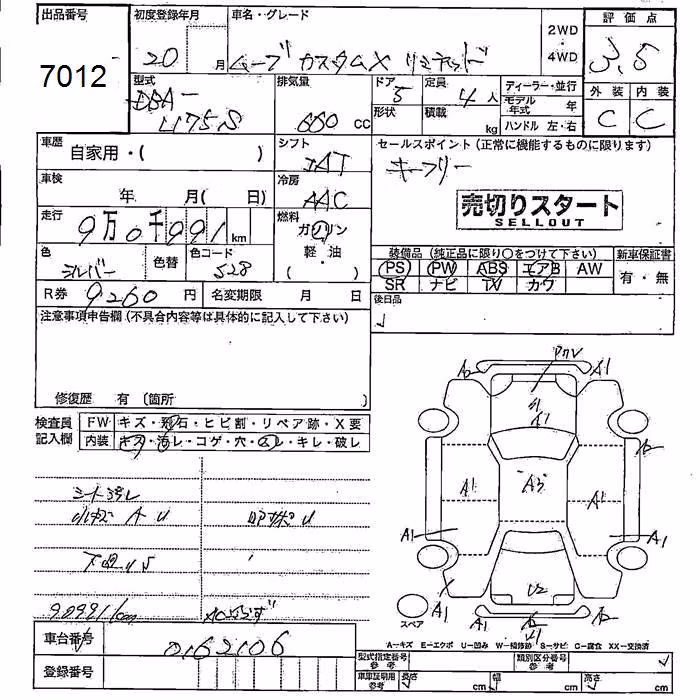 出品番号 初度登録年月 車名・グレード 2WD 4WD 評価点
7012 20 月 ムーブ カスタムX リミテッド 3.5
型式 排気量 ドア 定員 ディーラー・並行 外装 内装
DBA- L175S 660 CC 5 4人 モデル年式 年 C C
形状 積載 kg ハンドル 左・右
車歴 自家用・( ) シフト セールスポイント (正常に機能するものに限ります)
キーフリー
車検 年 月( 日) 冷房 AAC
売切りスタート
SELLOUT
走行 9万0千991km 燃料 ガソリン
軽・油
( )
色 シルバー 色替 色コード S28
装備品 (純正品に限り○をつけて下さい) 新車保証書
PS PW ABS エアB AW 有・無
SR ナビ TV カワ
R券 9260 円 名変期限 月 日 後日品
注意事項申告欄 (不具合内容等は具体的に記入して下さい)
修復歴 有 (箇所 )
検査員記入欄 FW キズ・飛石・ヒビ割・リペア跡・X要
内装 キズ・汚レ・コゲ・穴・スレ・キレ・破レ
小キズ A U
下回りS
90991km
A2 A1
A1
A2
A1 A3 A1
A1 A1
U2
スペア A1 A2
A-キズ E-エクボ U-凹み W-補修跡 S-サビ C-腐食 XX-交換済
車台番号 0162106
型式指定番号 参考 類別区分番号 参考
登録番号
車庫証明用 参考 長さ cm 幅 cm 高さ cm